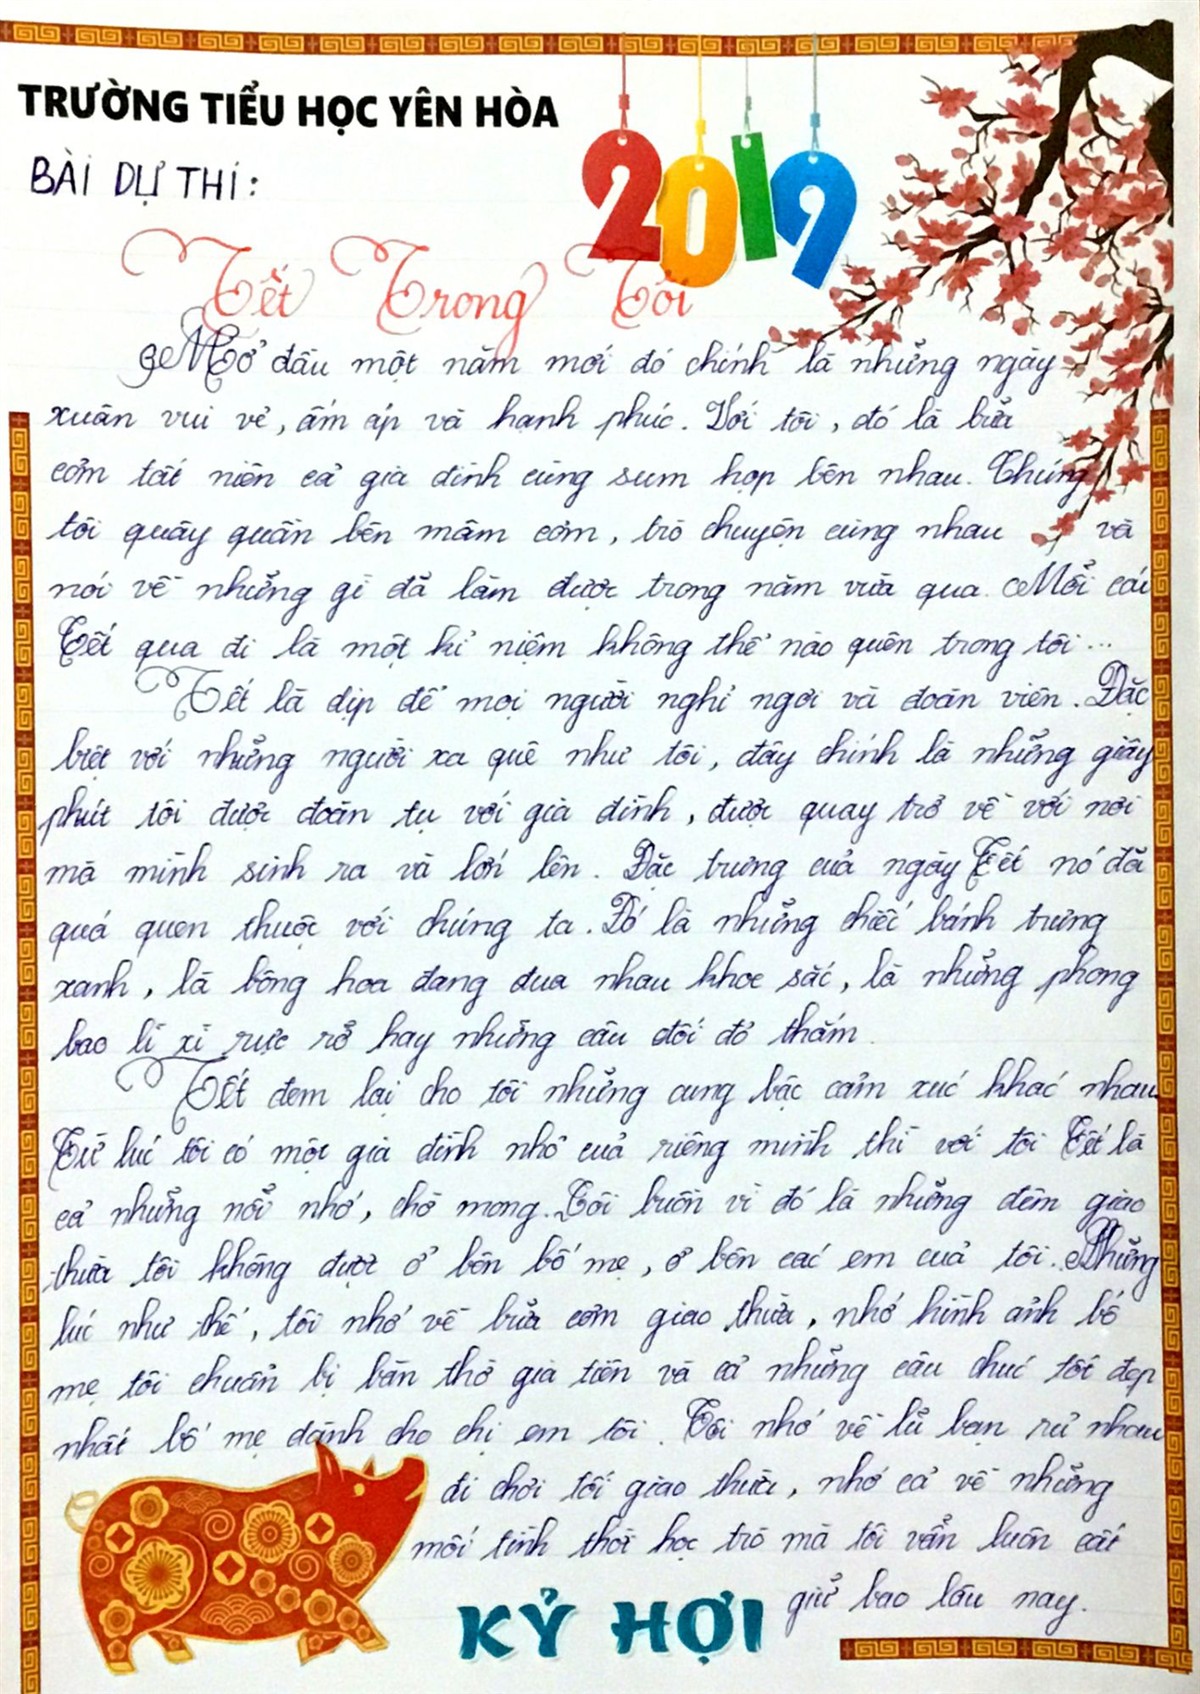 TRƯỜNG TIỂU HỌC YÊN HÒA
BÀI DỰ THI:
2019
Tết Trong Tôi
Mở đầu một năm mới đó chính là những ngày
xuân vui vẻ, ấm áp và hạnh phúc. Với tôi, đó là bữa
cơm tất niên cả gia đình cùng sum họp bên nhau. Chúng
tôi quây quần bên mâm cơm, trò chuyện cùng nhau và
nói về những gì đã làm được trong năm vừa qua. Mỗi cái
Tết qua đi là một kỉ niệm không thể nào quên trong tôi...
Tết là dịp để mọi người nghỉ ngơi và đoàn viên. Đặc
biệt với những người xa quê như tôi, đây chính là những giây
phút tôi được đoàn tụ với gia đình, được quay trở về với nơi
mà mình sinh ra và lớn lên. Đặc trưng của ngày Tết nó đã
quá quen thuộc với chúng ta. Đó là những chiếc bánh trưng
xanh, là bông hoa đang đua nhau khoe sắc, là những phong
bao lì xì rực rỡ hay những câu đối đỏ thắm.
Tết đem lại cho tôi những cung bậc cảm xúc khác nhau.
Từ lúc tôi có một gia đình nhỏ của riêng mình thì với tôi Tết là
cả những nỗi nhớ, chờ mong. Tôi buồn vì đó là những đêm giao
thừa tôi không được ở bên bố mẹ, ở bên các em của tôi. Những
lúc như thế, tôi nhớ về bữa cơm giao thừa, nhớ hình ảnh bố
mẹ tôi chuẩn bị bàn thờ gia tiên và cả những câu chúc tốt đẹp
nhất bố mẹ dành cho chị em tôi. Tôi nhớ về lũ bạn rủ nhau
đi chơi tối giao thừa, nhớ cả về những
mối tình thời học trò mà tôi vẫn luôn cất
giữ bao lâu nay.
KỶ HỢI